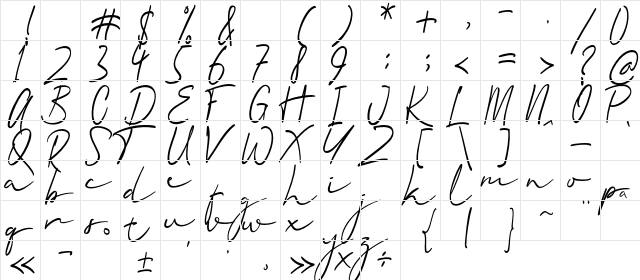 ! # $ % & ( ) * + , - . / 0
1 2 3 4 5 6 7 8 9 : ; < = > ? @
A B C D E F G H I J K L M N O P
Q R S T U V W X Y Z [ \ ] ^ _ `
a b c d e f g h i j k l m n o p ¨ ª
q r s t u v w x y z { | } ~
« ¯ ± ´ · ¸ » ÷